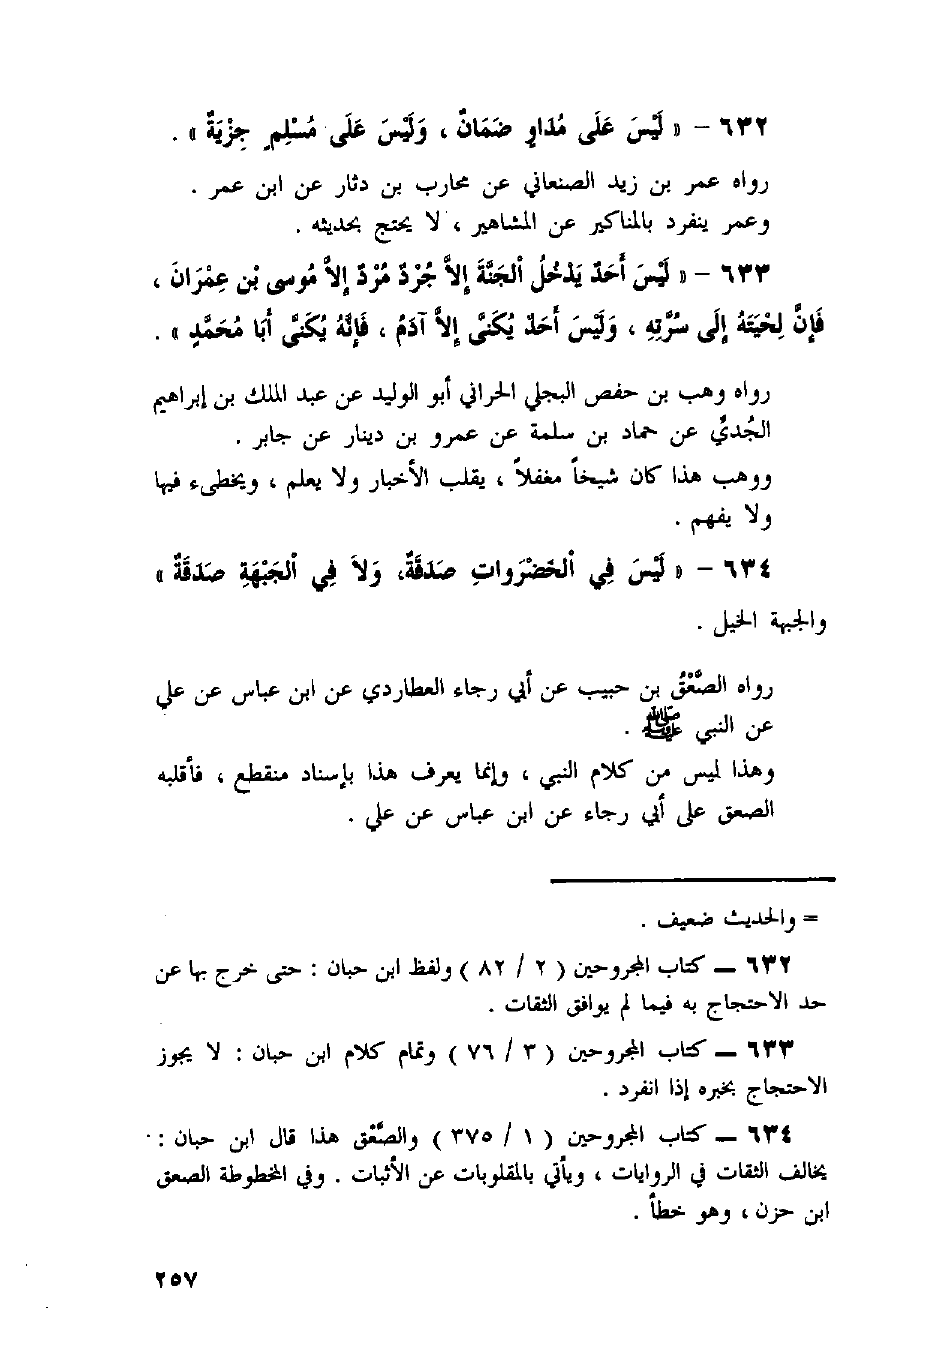 ٦٣٢ – « لَيْسَ عَلَى مُدَاوٍ ضَمَانٌ ، وَلَيْسَ عَلَى مُسْلِمٍ جِزْيَةٌ » .
رواه عمر بن زيد الصنعاني عن محارب بن دثار عن ابن عمر .
وعمر ينفرد بالمناكير عن المشاهير ، لا يحتج بحديثه .
٦٣٣ – « لَيْسَ أَحَدٌ يَدْخُلُ ٱلجَنَّةَ إِلاَّ جُرْدٌ مُرْدٌ إِلاَّ مُوسى بْن عِمْرَانَ ،
فَإِنَّ لِحْيَتَهُ إِلَى سُرَّتِهِ ، وَلَيْسَ أَحَدٌ يُكَنَّى إِلاَّ آدَمُ ، فَإِنَّهُ يُكَنَّى أَبَا مُحَمَّدٍ » .
رواه وهب بن حفص البجلي الحراني أبو الوليد عن عبد الملك بن إبراهيم
الجُديِّ عن حماد بن سلمة عن عمرو بن دينار عن جابر .
ووهب هذا كان شيخاً مغفلاً ، يقلب الأخبار ولا يعلم ، ويخطىء فيها
ولا يفهم .
٦٣٤ – « لَيْسَ فِي ٱلخَضْرَواتِ صَدَقَةٌ، وَلاَ فِي ٱلجَبْهَةِ صَدقَةٌ »
والجبهة الخيل .
رواه الصَّعْقُ بن حبيب عن أبي رجاء العطاردي عن ابن عباس عن علي
عن النبي ﷺ .
وهذا ليس من كلام النبي ، وإنما يعرف هذا بإسناد منقطع ، فأقلبه
الصعق على أبي رجاء عن ابن عباس عن علي .
= والحديث ضعيف .
٦٣٢ – كتاب المجروحين ( ٢ / ٨٢ ) ولفظ ابن حبان : حتى خرج بها عن
حد الاحتجاج به فيما لم يوافق الثقات .
٦٣٣ – كتاب المجروحين ( ٣ / ٧٦ ) وتمام كلام ابن حبان : لا يجوز
الاحتجاج بخبره إذا انفرد .
٦٣٤ – كتاب المجروحين ( ١ / ٣٧٥ ) والصَّعْق هذا قال ابن حبان :
يخالف الثقات في الروايات ، ويأتي بالمقلوبات عن الأثبات . وفي المخطوطة الصعق
ابن حزن ، وهو خطأ .
٢٥٧